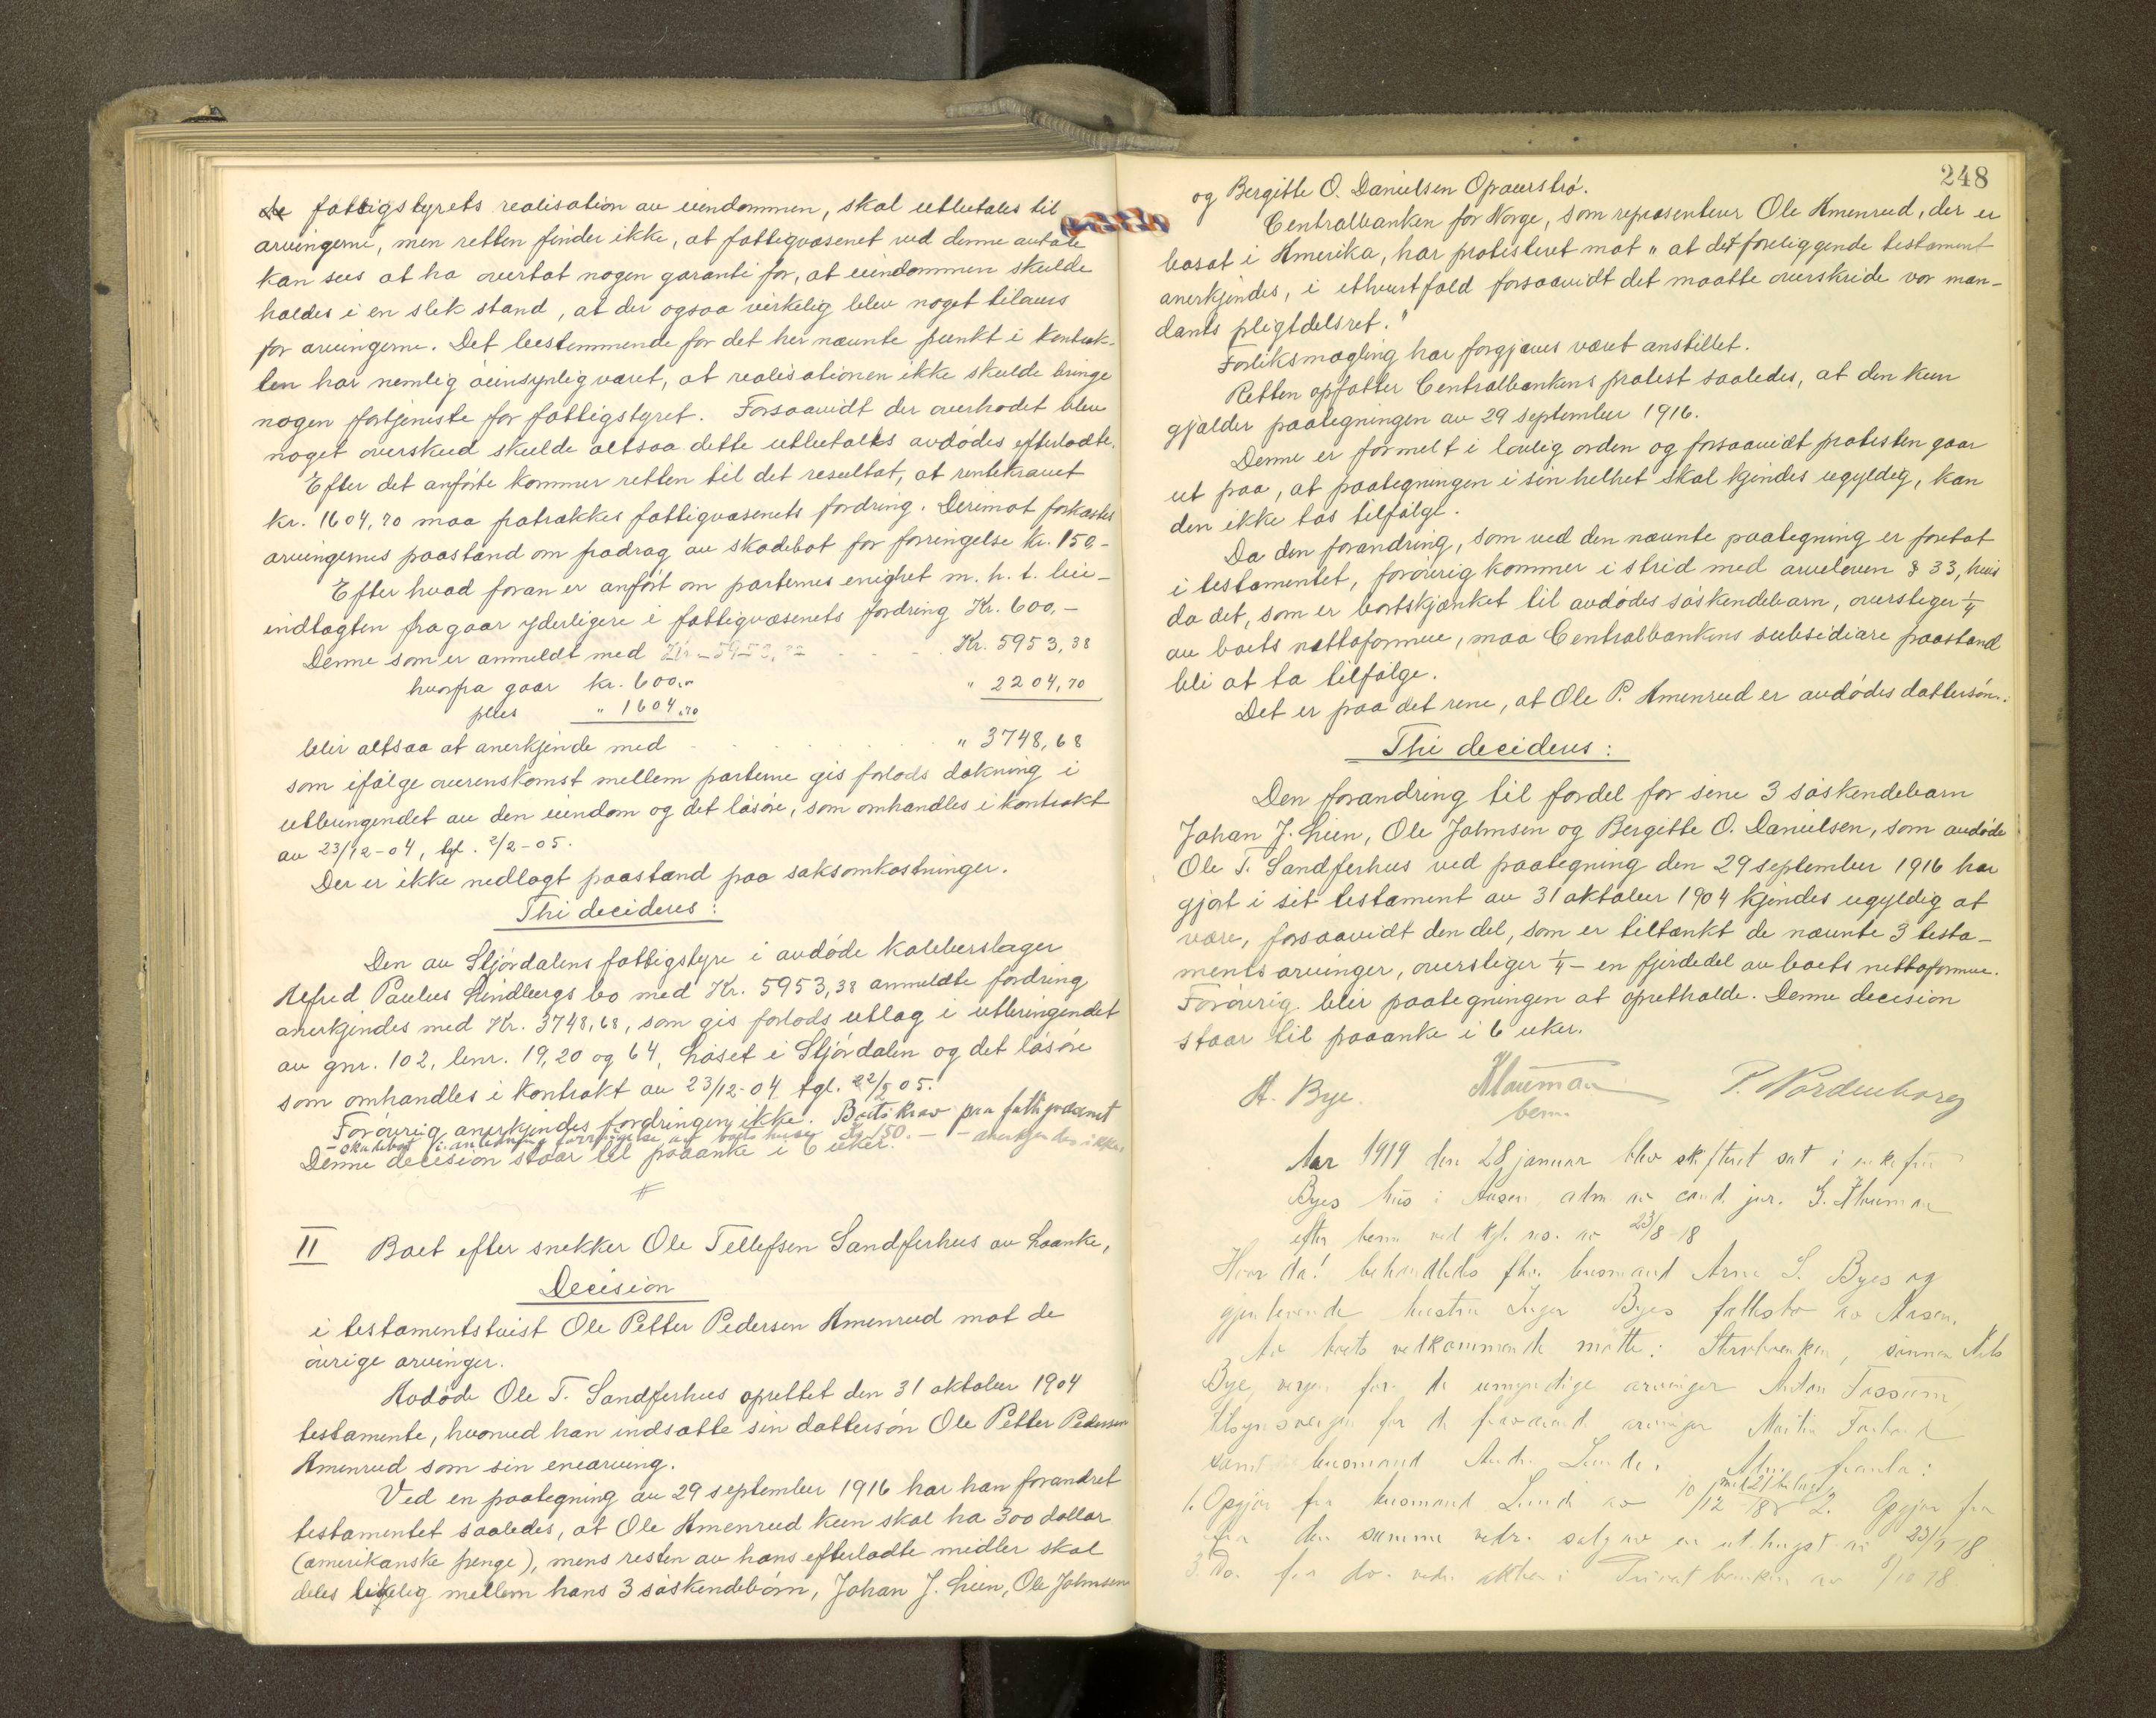 de fattigstyrets realisation av eiendommen, skal utbetales til
arvingerne, men retten finder ikke, at fattigvæsenet ved denne avtale
kan sees at ha overtat nogen garanti for, at eiendommen skulde
holdes i en slik stand, at der ogsaa virkelig blev noget tilovers
for arvingerne. Det bestemmende for det her nævnte punkt i kontrak-
ten har nemlig øiensynlig været, at realisationen ikke skulde bringe
nogen fortjeneste for fattigstyret. Forsaavidt der overhodet blev
noget overskud skulde altsaa dette utbetales avdødes efterladte.
Efter det anførte kommer retten til det resultat, at rentekravet
kr. 1604,70 maa fratrækkes fattigvæsenets fordring. Derimot forkastes
arvingernes paastand om fradrag av skadebot for forringelse kr. 150,-
Efter hvad foran er anført om parternes enighet m. h. t. leie-
indtægten fragaar yderligere i fattigvæsenets fordring Kr. 600,-
Denne som er anmeldt med Kr. 5953,38
hvorfra gaar kr. 600,-
plus " 1604,70 " 2204,70
blir altsaa at anerkjende med " 3748,68
som ifølge overenskomst mellem parterne gis forlods dækning i
utbringendet av den eiendom og det løsøre, som omhandles i kontrakt
av 23/12-04, tgl. 2/2-05.
Der er ikke nedlagt paastand paa saksomkostninger.
Thi decideres:
Den av Stjørdalens fattigstyre i avdøde kobberslager
Alfred Paulus Lindbergs bo med Kr. 5953,38 anmeldte fordring
anerkjendes med Kr. 3748,68, som gis forlods utlæg i utbringendet
av gnr. 102, bnr. 19, 20 og 64, Løset i Stjørdalen og det løsøre
som omhandles i kontrakt av 23/12-04 tgl. 2/2 05.
Forøvrig anerkjendes fordringen ikke. Boets krav paa fattigvæsenet
- skadebot i anledning forringelse av boets huser kr 150.- - anerkjendes ikke.
Denne decision staar til paaanke i 6 uker.
II Boet efter snekker Ole Tellefsen Sandferhus av Laanke,
Decision
i testamentstvist Ole Petter Pedersen Amenrud mot de
øvrige arvinger.
Avdøde Ole T. Sandferhus oprettet den 31 oktober 1904
testamente, hvorved han indsatte sin dattersøn Ole Petter Pedersen
Amenrud som sin enearving.
Ved en paategning av 29 september 1916 har han forandret
testamentet saaledes, at Ole Amenrud kun skal ha 300 dollar
(amerikanske penge), mens resten av hans efterladte midler skal
deles likelig mellem hans 3 søskendebørn, Johan J. Lien, Ole Johnsen
248
og Bergitte O. Danielsen Opaunstrø.
Centralbanken for Norge, som repræsenterer Ole Amenrud, der er
bosat i Amerika, har protesteret mot "at det foreliggende testament
anerkjendes, i ethvert fald forsaavidt det maatte overskride vor man-
dants pligtdelsret."
Forliksmægling har forgjæves været anstillet.
Retten opfatter Centralbankens protest saaledes, at den kun
gjælder paategningen av 29 september 1916.
Denne er formelt i lovlig orden og forsaavidt protesten gaar
ut paa, at paategningen i sin helhet skal kjendes ugyldig, kan
den ikke tas tilfølge.
Da den forandring, som ved den nævnte paategning er foretat
i testamentet, forøvrig kommer i strid med arveloven § 33, hvis
da det, som er bortskjænket til avdødes søskendebarn, overstiger 1/4
av boets nettoformue, maa Centralbankens subsidiære paastand
bli at ta tilfølge.
Det er paa det rene, at Ole P. Amenrud er avdødes dattersøn.
Thi decideres:
Den forandring til fordel for sine 3 søskendebarn
Johan J. Lien, Ole Johnsen og Bergitte O. Danielsen, som avdøde
Ole T. Sandferhus ved paategning den 29 september 1916 har
gjort i sit testament av 31 oktober 1904 kjendes ugyldig at
være, forsaavidt den del, som er tiltænkt de nævnte 3 testa-
mentsarvinger, overstiger 1/4 - en fjerdedel av boets nettoformue.
Forøvrig blir paategningen at opretholde. Denne decision
staar til paaanke i 6 uker.
A. Bye. Klouman P. Nordenborg
bem.
Aar 1919 den 28 januar blev skifteret sat i enkefru
Byes hus i Aasen adm. av cand. jur. G. Klouman
efter bem ved Kgl. res. av 23/8-18
Hvor da! behandledes fhv. lensmand Arne S. Byes og
gjenlevende hustru Inger Byes fællesbo av Aasen.
Av boets vedkommende møtte: Stervboenken, sønnen Nils
Bye, verge for de umyndige arvinger Anton Fossum,
tilsynsverge for de fraværende arvinger Martin
samt lensmand Lunde. Adm. fremla:
1. Opgjør fra lensmand Lunde av 10/12 18 med 21 bilag 2. Opgjør fra
fra den samme vedr. salg av en ut.hingst av
3. Do. fra do. vedr. aktier i Privatbanken av 8/10 18